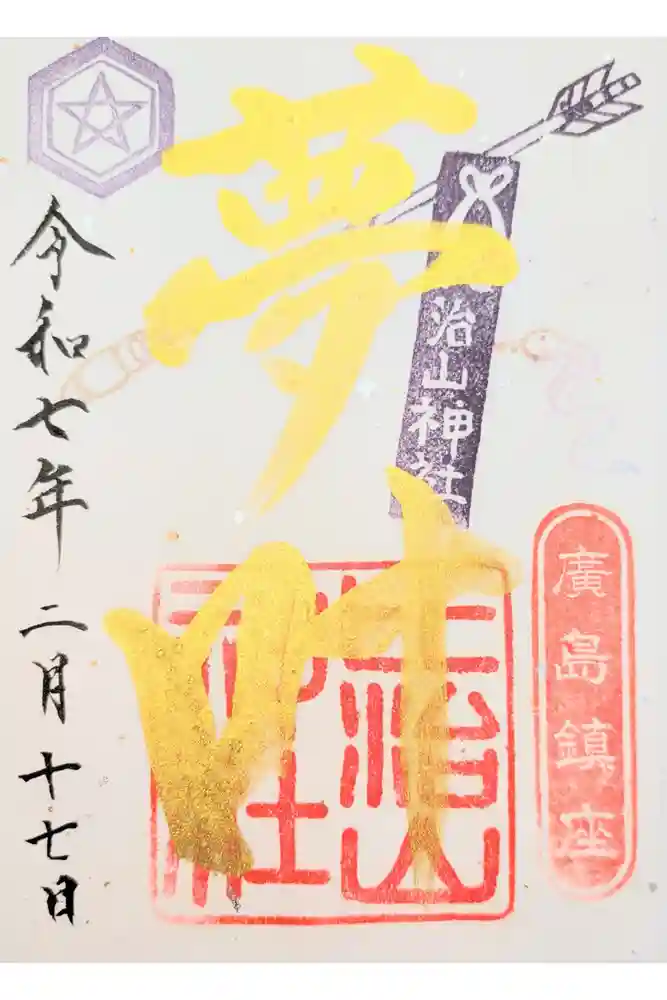 廣島鎮座
治山神社
夢叶
比治山
神社
令和七年二月十七日